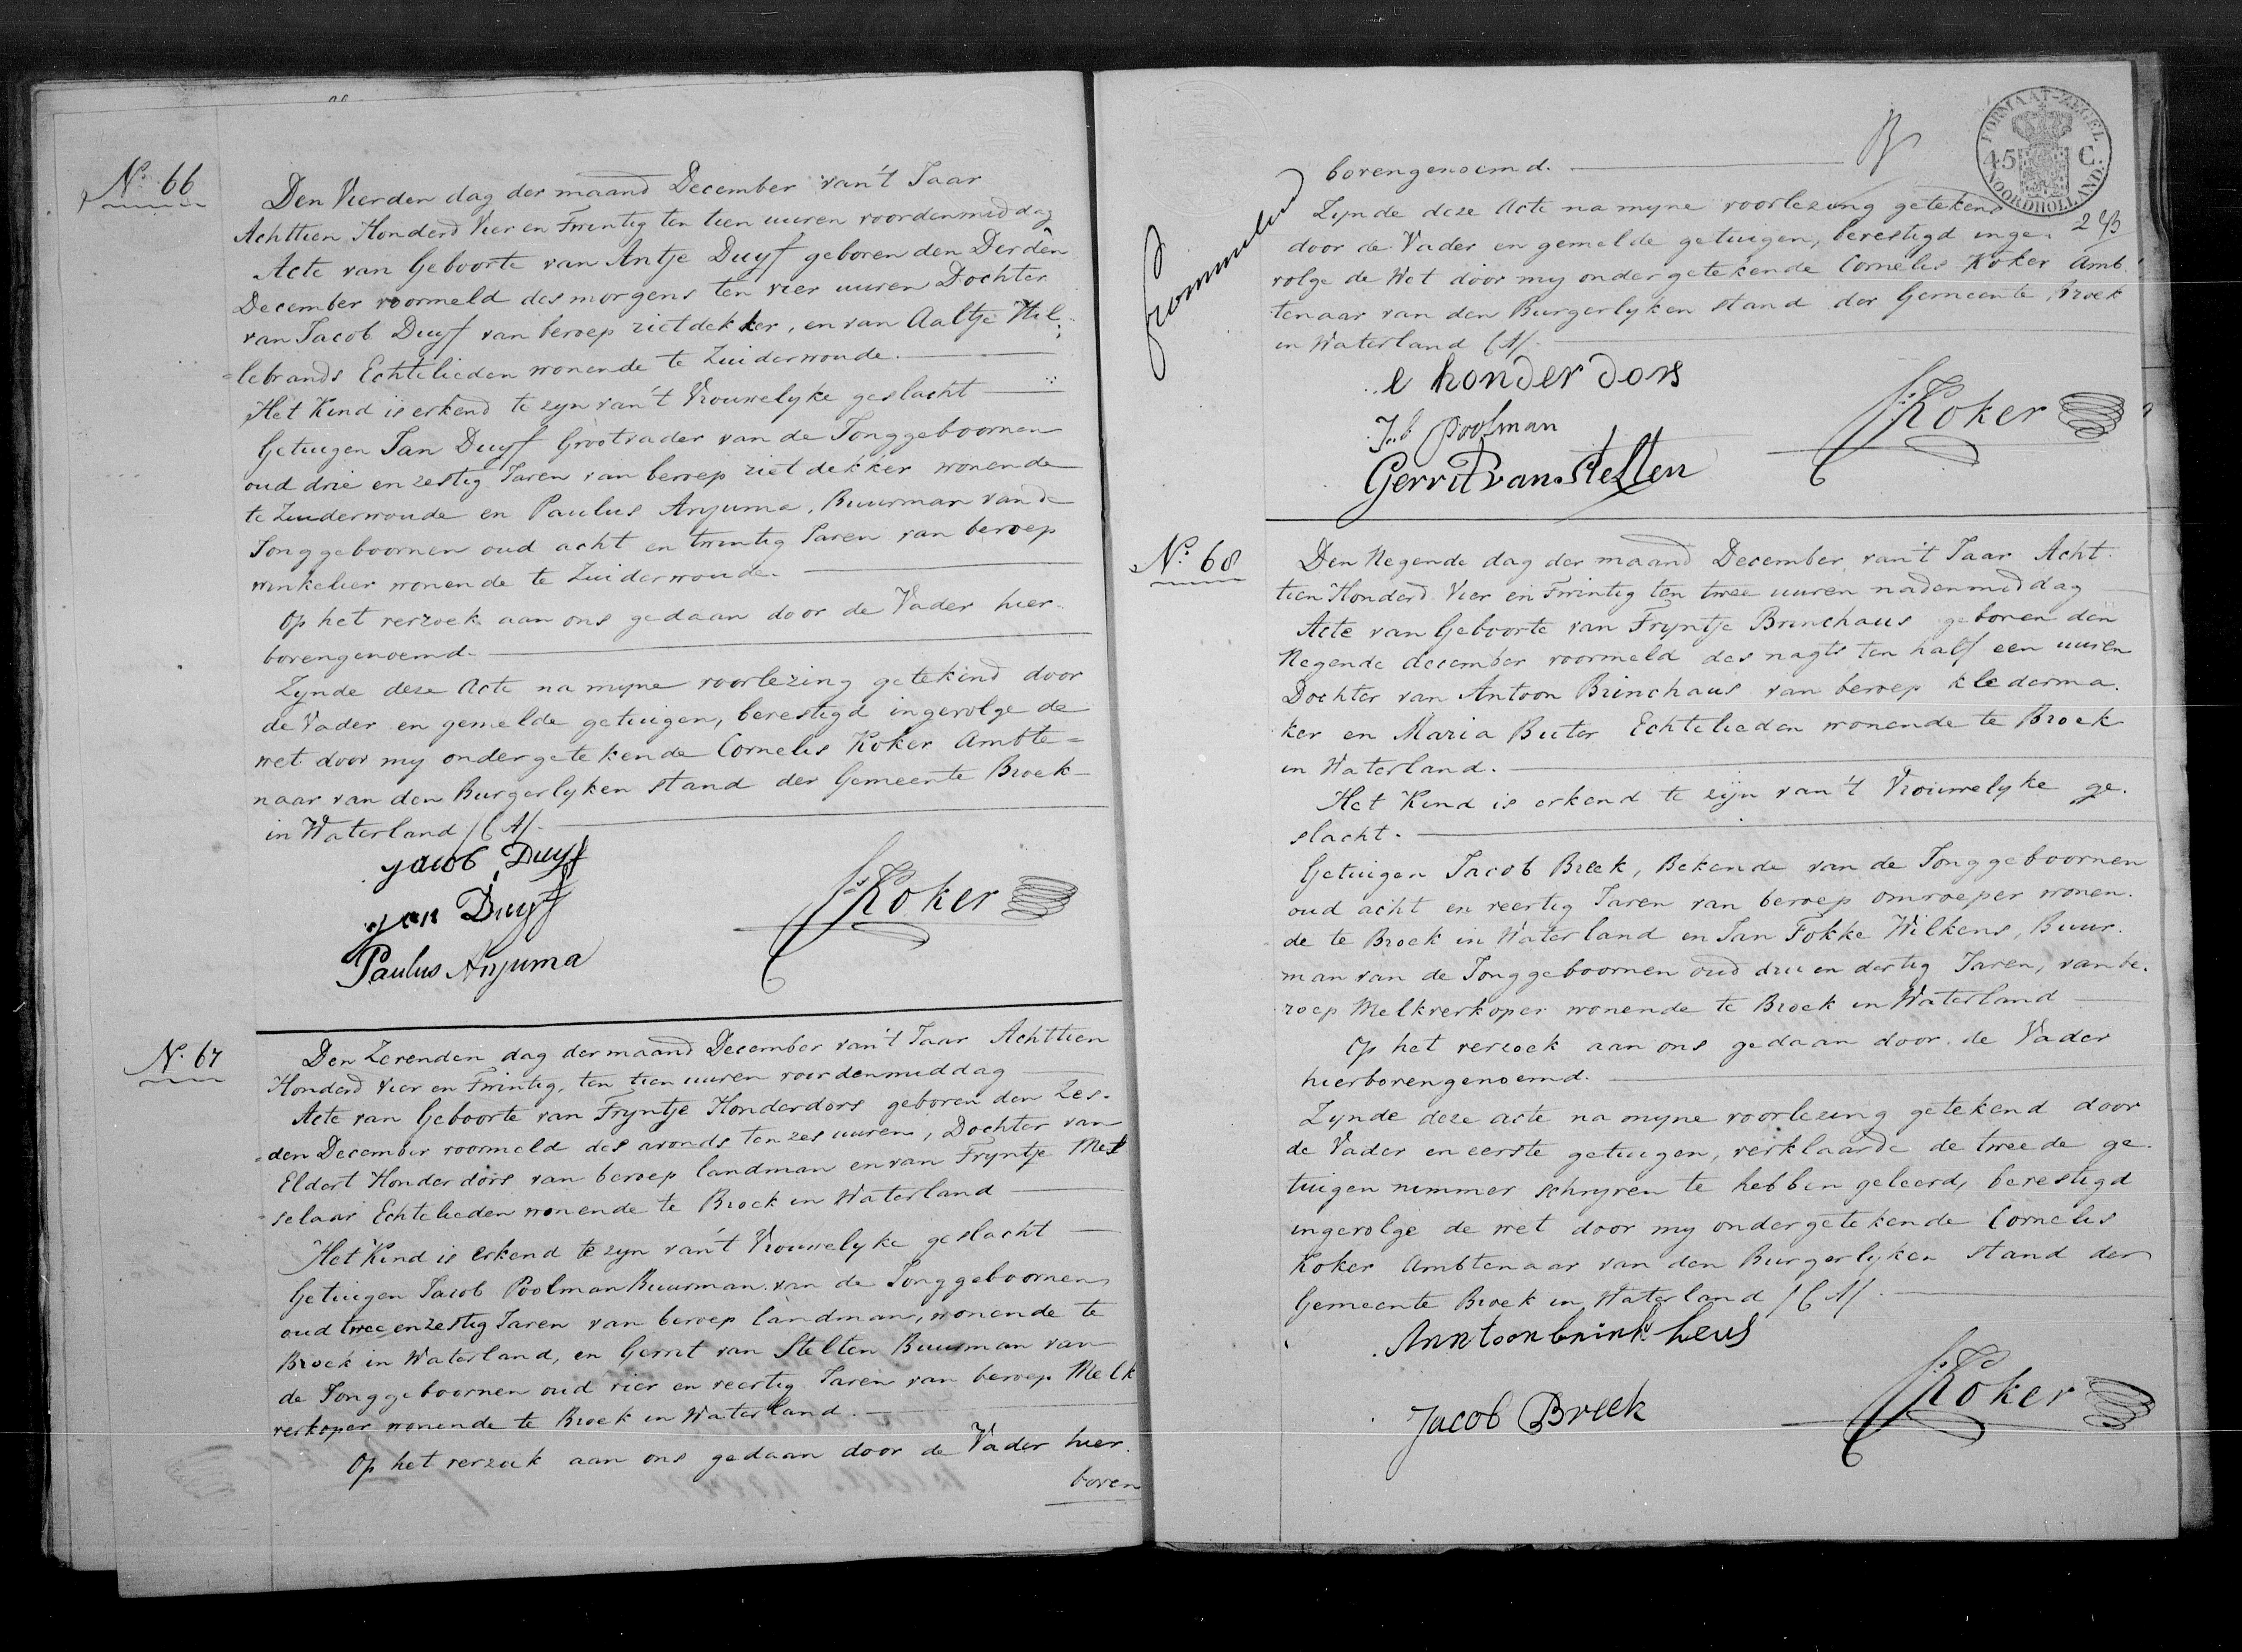 No. 66
Den Vierden dag der maand December van't Jaar
Achttien Honderd Vier en Twintig ten tien uuren voordenmiddag
Acte van Geboorte van Antje Duyf geboren den Derden
December voormeld des morgens ten vier uuren Dochter
van Jacob Duyf van beroep rietdekker, en van Aaltje Hil
=lebrands Echtelieden wonende te Zuiderwoude.
Het Kind is erkend te zyn van't Vrouwelyke geslacht
Getuigen Jan Duyf Grootvader van de Jonggeboornen
oud drie en zestig Jaren van beroep rietdekker wonende
te Zuiderwoude en Paulus Anjuma, Buurman van de
Jonggeboornen oud acht en twintig Jaren van beroep
winkelier wonende te Zuiderwoude.
Op het verzoek aan ons gedaan door de Vader hier
bovengenoemd.
Zynde deze Acte na myne voorlezing getekend door
de Vader en gemelde getuigen, bevestigd ingevolge de
wet door my ondergetekende Cornelis Koker Ambte=
naar van den Burgerlyken stand der Gemeente Broek
in Waterland
Jacob Duyf
Jan Duyf
Koker
Paulus Anjuma
No. 67
Den Zevenden dag der maand December van't Jaar Achttien
Honderd Vier en Twintig, ten tien uuren voordenmiddag
Acte van Geboorte van Tryntje Honderdors geboren den Zes=
=den December voormeld des avonds ten zes uuren, Dochter van
Eldert Honderdors van beroep landman en van Tryntje Mes
=selaar Echtelieden wonende te Broek in Waterland
Het Kind is erkend te zyn van't Vrouwelyke geslacht
Getuigen Jacob Poolman Buurman van de Jonggeboornen
oud twee en zestig Jaren van beroep landman, wonende te
Broek in Waterland, en Gerrit van Stelten Buurman van
de Jonggeboornen oud vier en veertig Jaren van beroep Melk
verkoper wonende te Broek in Waterland.
Op het verzoek aan ons gedaan door de Vader hier
boven
FORMAAT-ZEGEL
45 C.
NOORDHOLLAND.
bovengenoemd.
Zynde deze Acte na myne voorlezing getekend
door de Vader en gemelde getuigen, bevestigd inge
volge de Wet door my ondergetekende Cornelis Koker Amb
tenaar van den Burgerlyken stand der Gemeente Broek
in Waterland
e honder dors
Jb Poolman
Koker
Gerrit van Stelten
No. 68
Den Negende dag der maand December van't Jaar Acht
tien Honderd Vier en Twintig ten twee uuren nadenmiddag
Acte van Geboorte van Tryntje Brinchaus geboren den
Negende december voormeld des nagts ten half een uuren
Dochter van Antoon Brinchaus van beroep klederma.
ker en Maria Buter Echtelieden wonende te Broek
in Waterland.
Het Kind is erkend te zijn van't Vrouwelyke ge.
slacht.
Getuigen Jacob Breek, Bekende van de Jonggeboornen
oud acht en veertig Jaren van beroep omroeper wonen.
de te Broek in Waterland en Jan Fokke Wilkens, Buur.
man van de Jonggeboornen oud drie en dertig Jaren, van be.
roep Melkverkoper wonende te Broek in Waterland
Op het verzoek aan ons gedaan door de Vader
hierbovengenoemd.
Zynde deze acte na myne voorlezing getekend door
de Vader en eerste getuigen, verklaarde de tweede ge
tuigen nimmer schryven te hebben geleerd, bevestigd
ingevolge de wet door my ondergetekende Cornelis
Koker Ambtenaar van den Burgerlyken stand der
Gemeente Broek in Waterland
Anntoon brinkheus
Koker
Jacob Breek